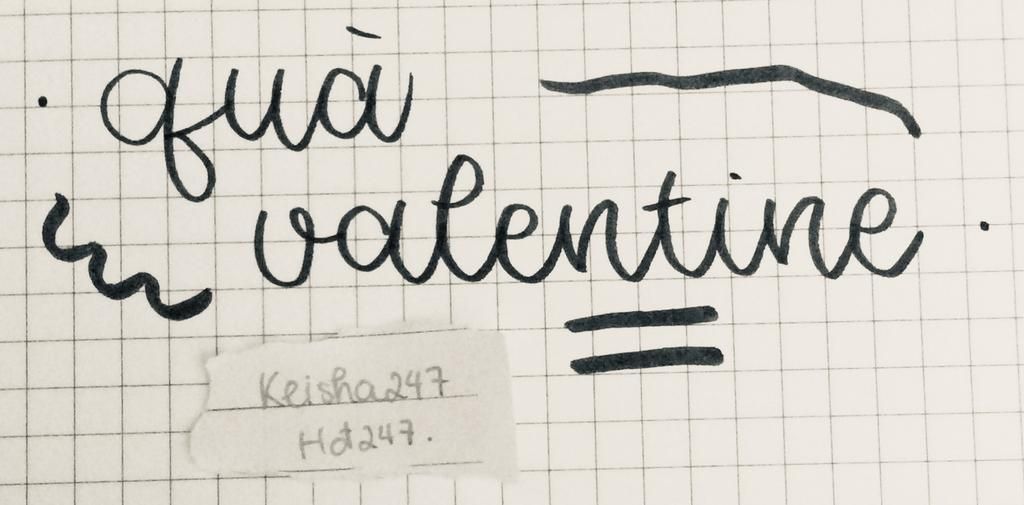 quà
valentine
Keisha247
Hot247.